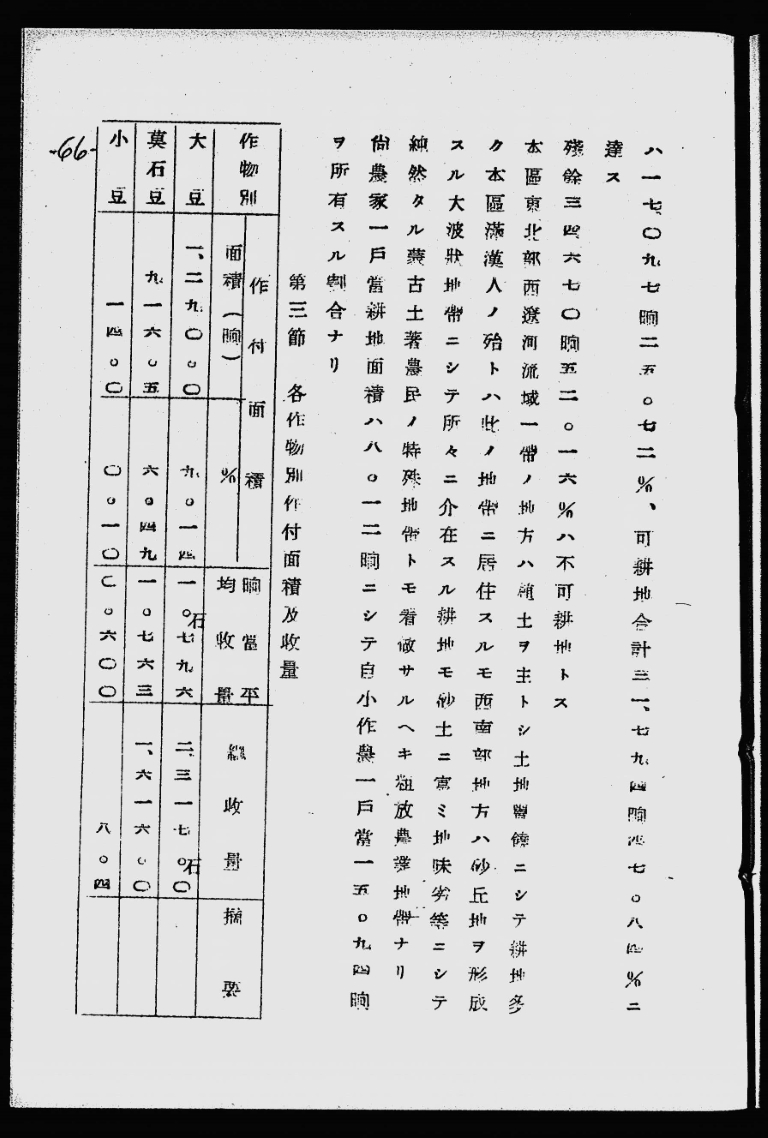 ハ一七、〇九七晌二五。七二％、可耕地合計三一、七九四晌四七。八四％ニ
達ス
殘餘三四六七〇晌五二。一六％ハ不可耕地トス
本區東北部西遼河流域一帶ノ地方ハ植土ヲ主トシ土地豐饒ニシテ耕地多
ク本區滿漢人ノ殆トハ此ノ地帶ニ居住スルモ西南部地方ハ砂丘地ヲ形成
スル大波狀地帶ニシテ所々ニ介在スル耕地モ砂土ニ富ミ地味劣等ニシテ
純然タル蒙古土著農民ノ特殊地帶トモ看做サルヘキ粗放農業地帶ナリ
尚農家一戶當耕地面積ハ八。一二晌ニシテ自小作農一戶當一五。九四晌
ヲ所有スル割合ナリ
第三節　各作物別作付面積及收量
作物別　作付面積　晌當平均收量　總收量　摘要
面積（晌）　％
大豆　一、二九〇。〇　九。一四　一。七九六石　二、三一七。〇石
莫石豆　九一六。五　六。四九　一。七六三　一、六一六。〇
小豆　一四。〇　〇。一〇　〇。六〇〇　八。四
-66-